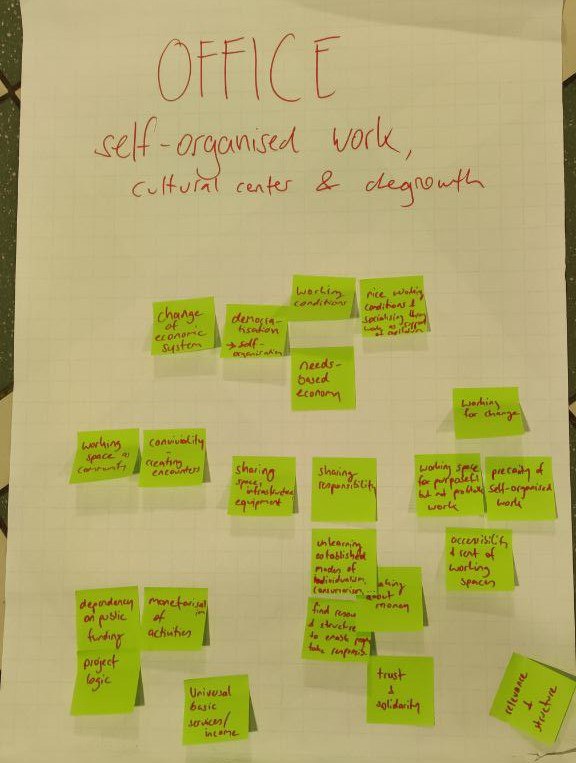 OFFICE
self-organised work,
cultural center & degrowth
change
of
economic
system
democra-
tisation
→ self-
organisation
working
conditions
nice working
conditions &
socialising
needs-
based
economy
working
for change
working
space as
community
conviviality
creating
encounters
sharing
space,
infrastructure
equipment
sharing
responsibility
working space
for purposeful
but not profitable
work
precarity of
self-organised
work
unlearning
established
modes of
individualism,
consumerism
accessibility
& rent of
working
spaces
about
money
find
& structure
to enable
take
dependency
on public
funding
monetarisation
of
activities
project
logic
Universal
basic
services/
income
trust
&
solidarity
relevance &
structure